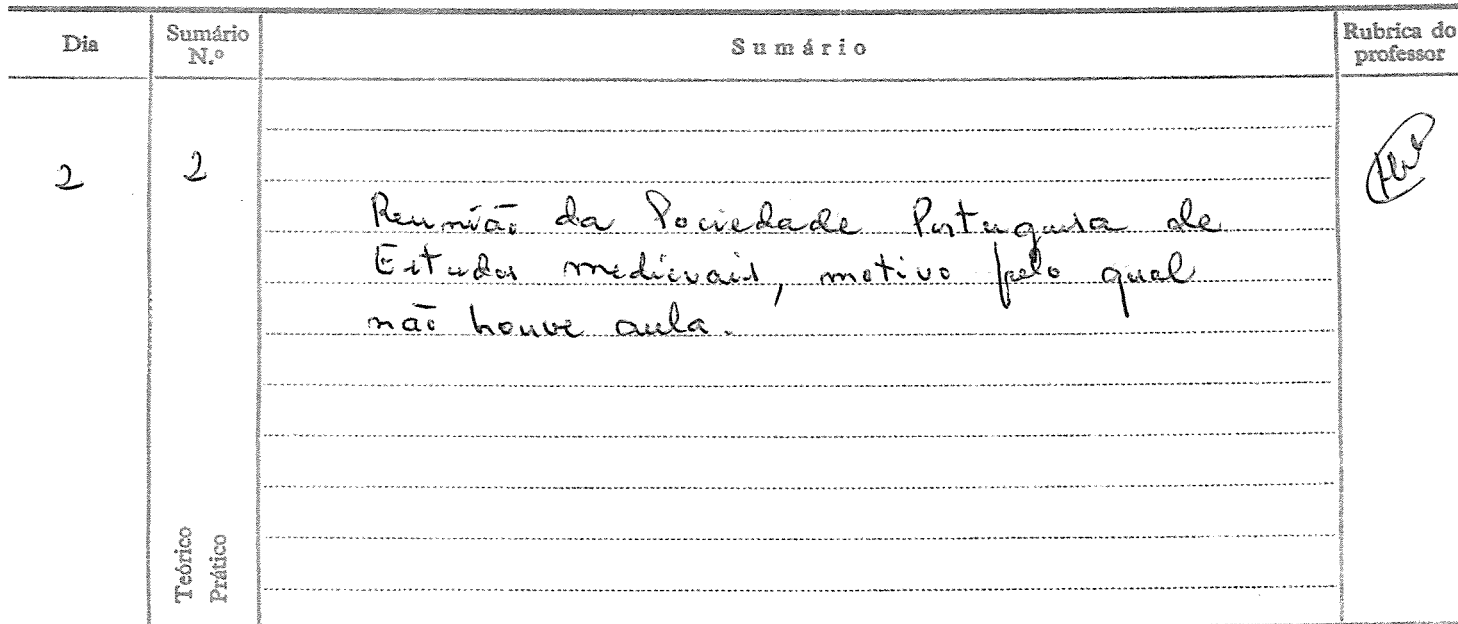 Dia
Sumário N.º
Sumário
Rubrica do professor
2
2
Reunião da Sociedade Portuguesa de
Estudos medievais, motivo pelo qual
não houve aula.
Teórico
Prático